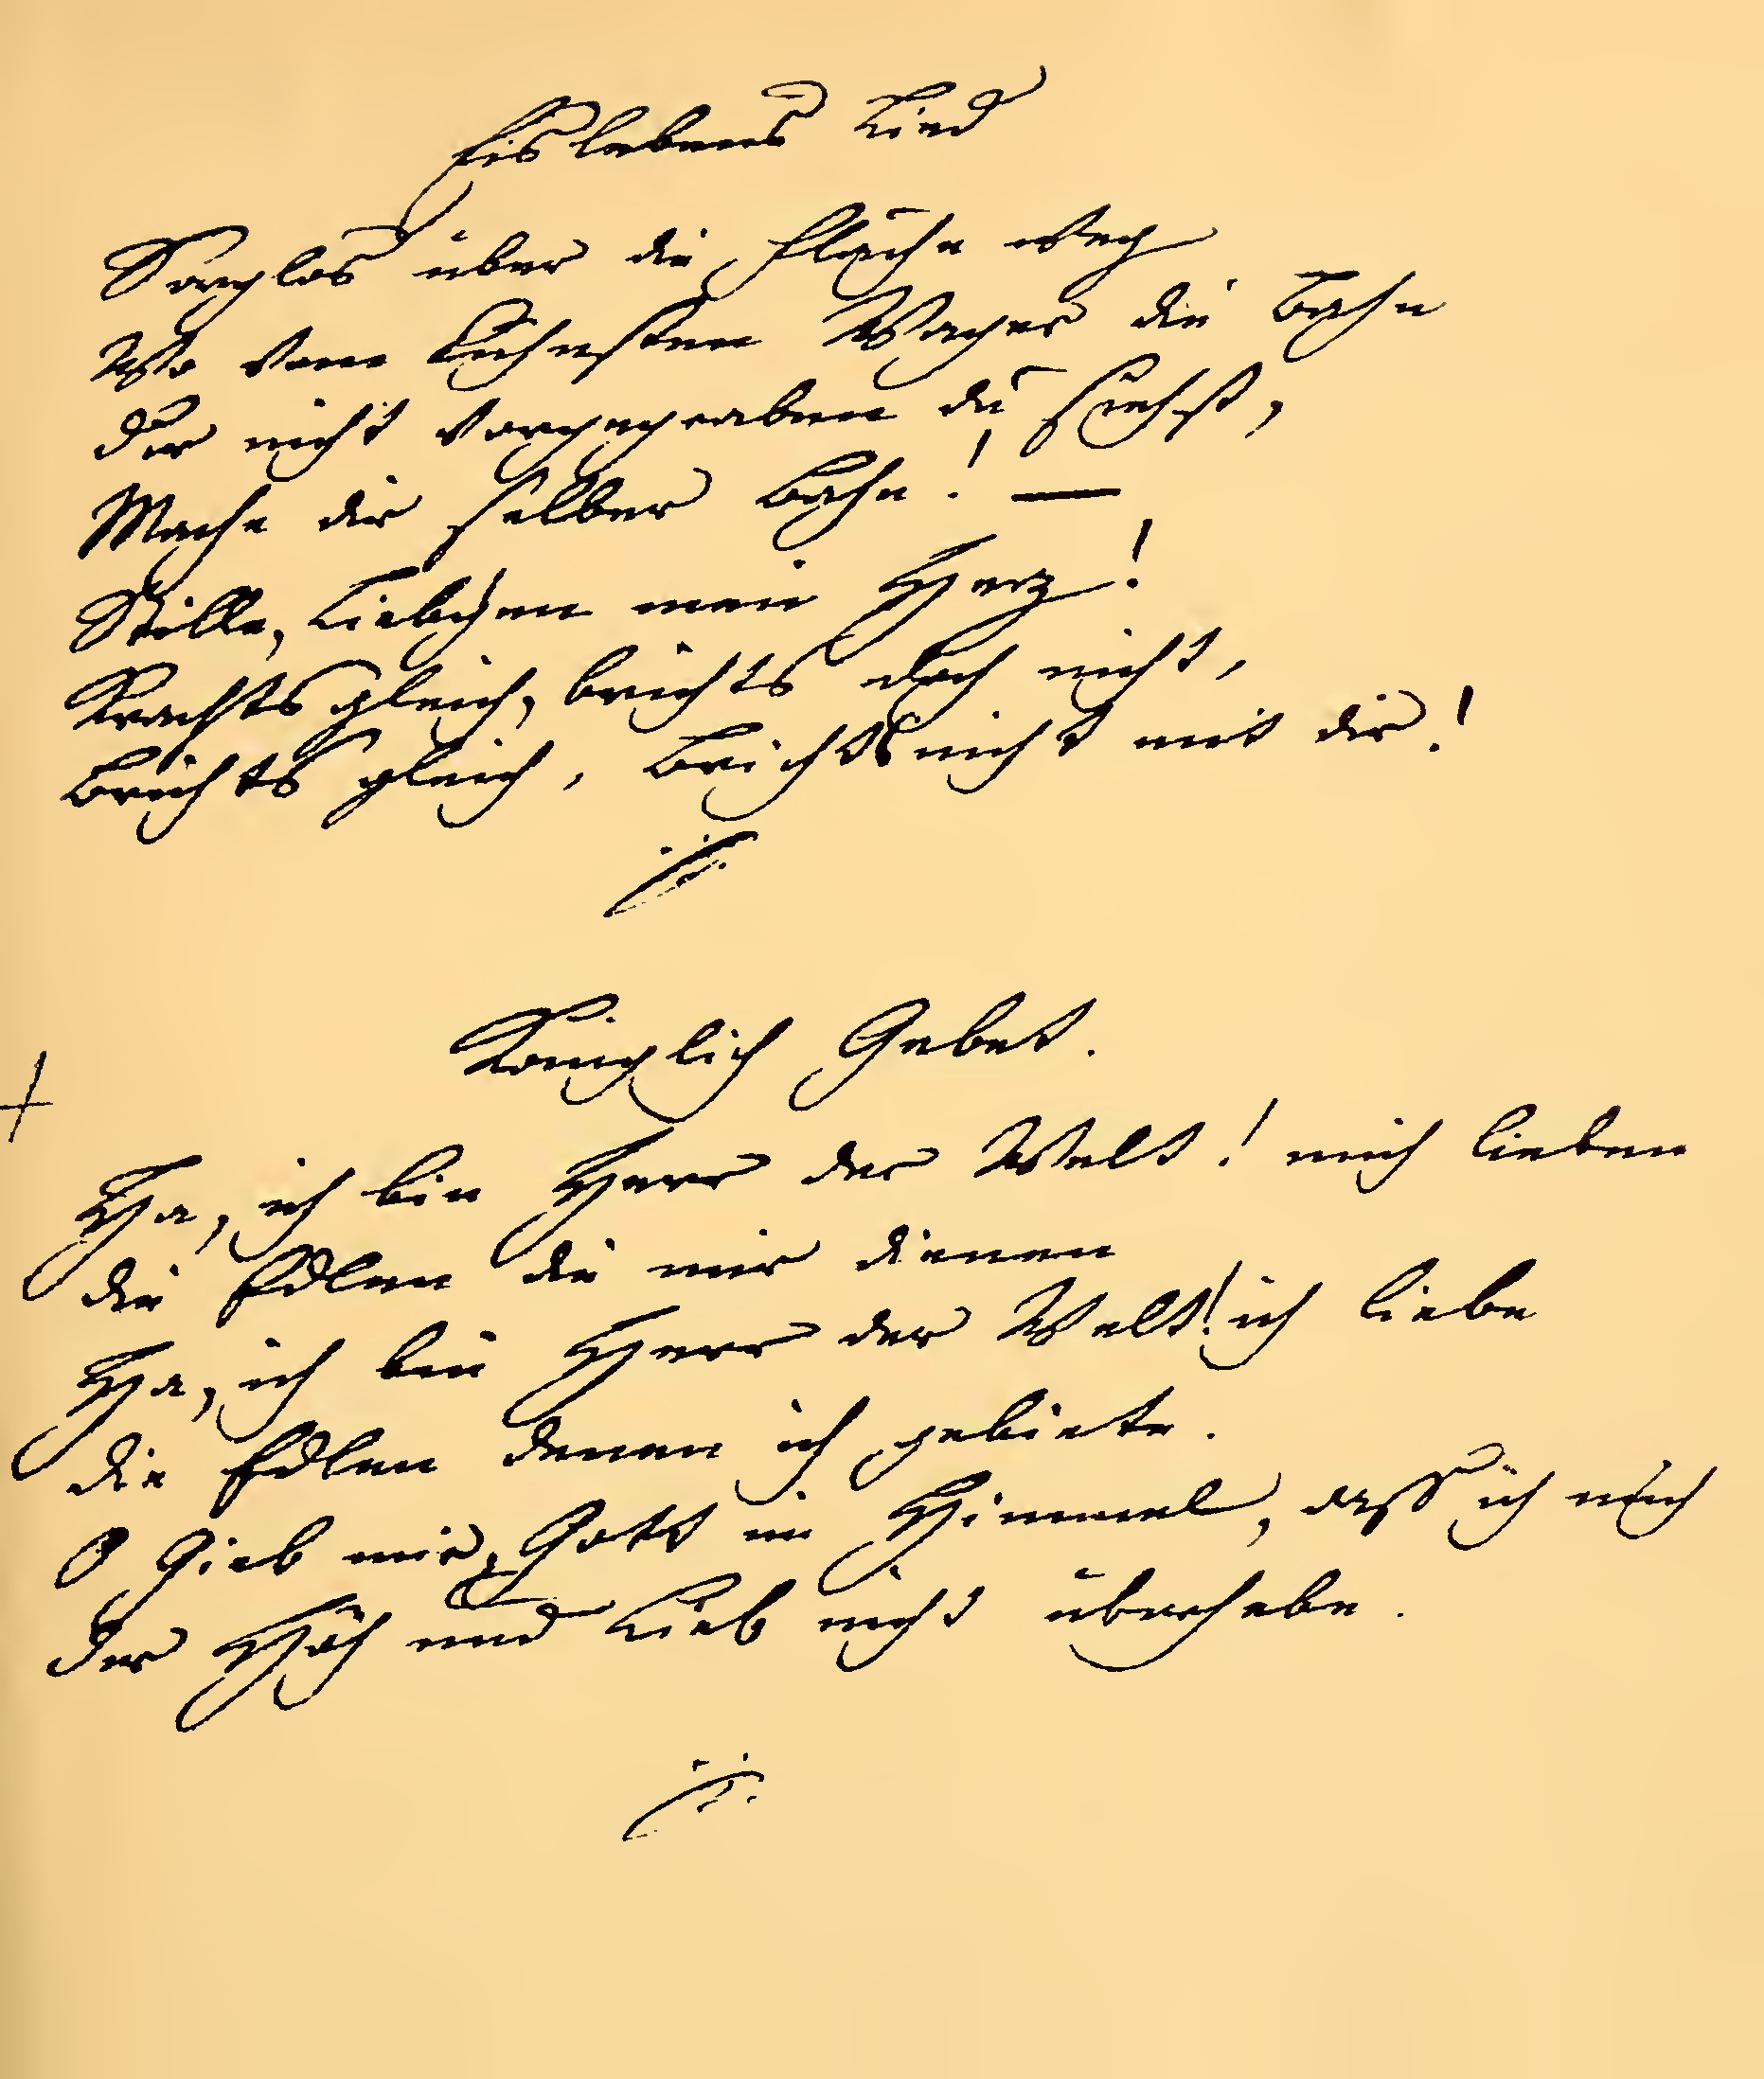 Eislebens Lied
Sorglos über die Fläche weg
Wo vom kühnsten Wager die Bahn
Dir nicht vorgegraben du siehst,
Mache dir selber Bahn! —
Stille, Liebchen mein Herz!
Krachts gleich, brichts doch nicht,
Brichts gleich, Brichts nicht mit dir!
Königlich Gebet.
Ha, ich bin Herr der Welt! mich lieben
die Edlen die mir dienen
Ha, ich bin Herr der Welt! ich liebe
die Edlen denen ich gebiete.
O Gieb mir, Gott im Himmel, dass ich mich
der Höh und Lieb nicht überhebe.